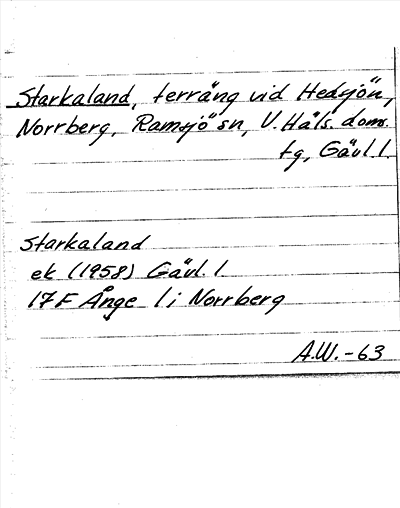 Starkaland, terräng vid Hedsjön,
Norrberg, Ramsjö sn, V. Häls. doms.
tg, Gävl. l.
Starkaland
ek (1958) Gävl. l
17 F Ånge l i Norrberg
A.W. -63